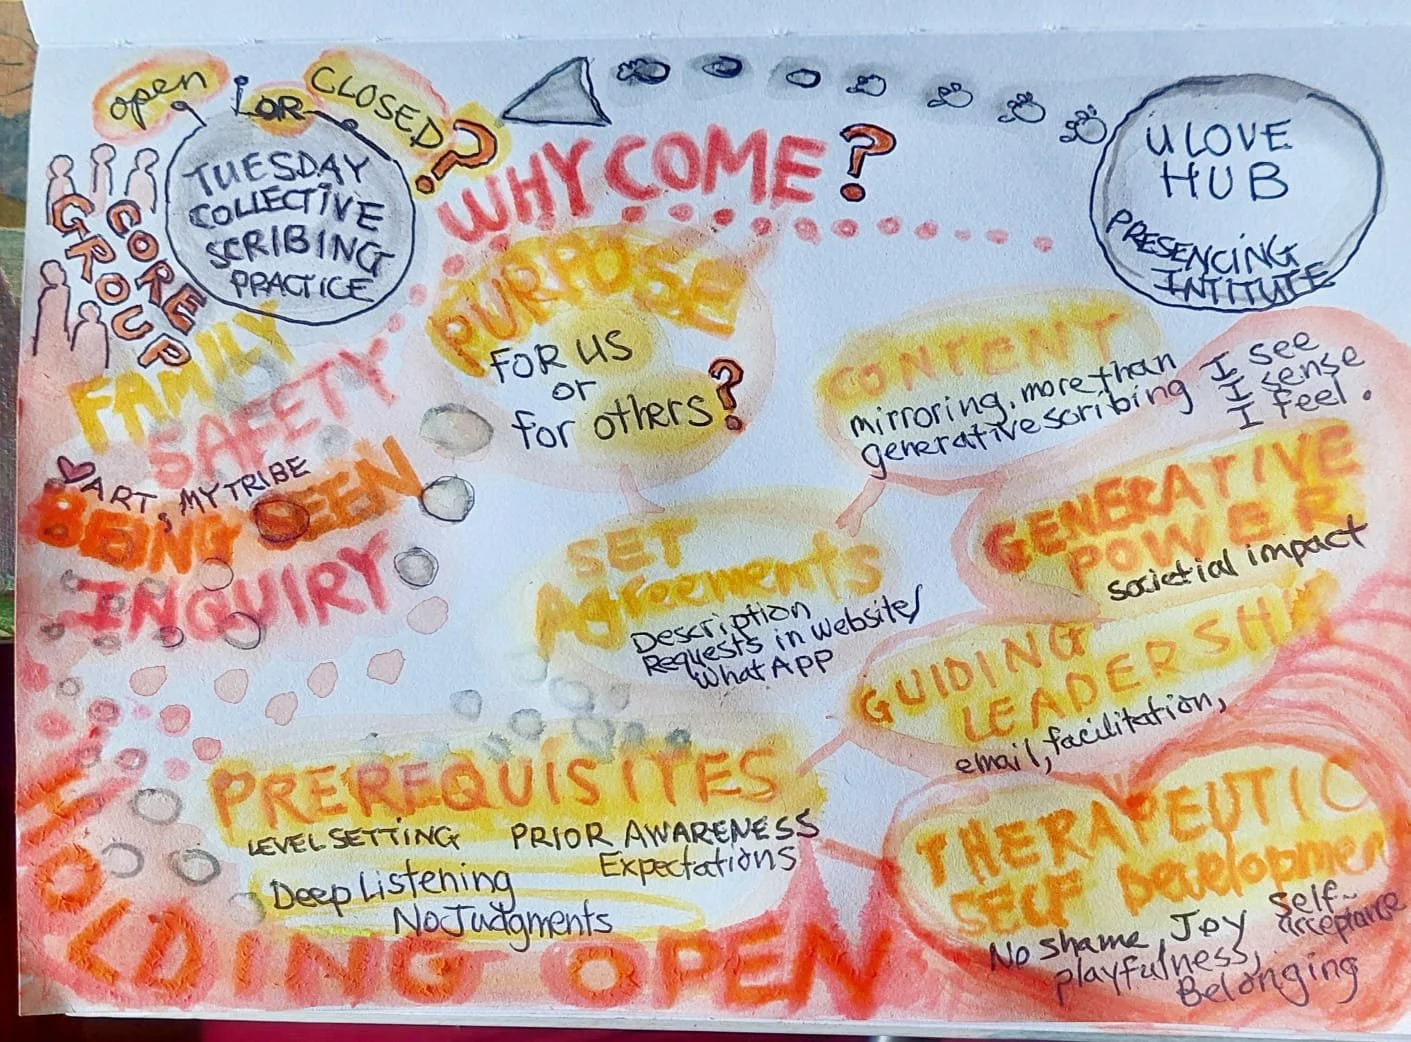 open
OR
CLOSED
?
TUESDAY
COLLECTIVE
SCRIBING
PRACTICE
CORE
GROUP
WHY COME?
U LOVE
HUB
PRESENCING
INTITUTE
FAMILY
SAFETY
ART, MY TRIBE
BEING SEEN
INQUIRY
PURPOSE
FOR US
or
for others?
CONTENT
mirroring, more than
generative scribing
I see
I sense
I feel.
GENERATIVE
POWER
societial impact
SET
Agreements
Description
Requests in website/
WhatApp
GUIDING
LEADERSHIP
email, facilitation,
PREREQUISITES
LEVEL SETTING
PRIOR AWARENESS
Expectations
Deep Listening
No Judgments
THERAPEUTIC
SELF Development
No shame, Joy
self-
acceptance
playfulness,
Belonging
HOLDING OPEN